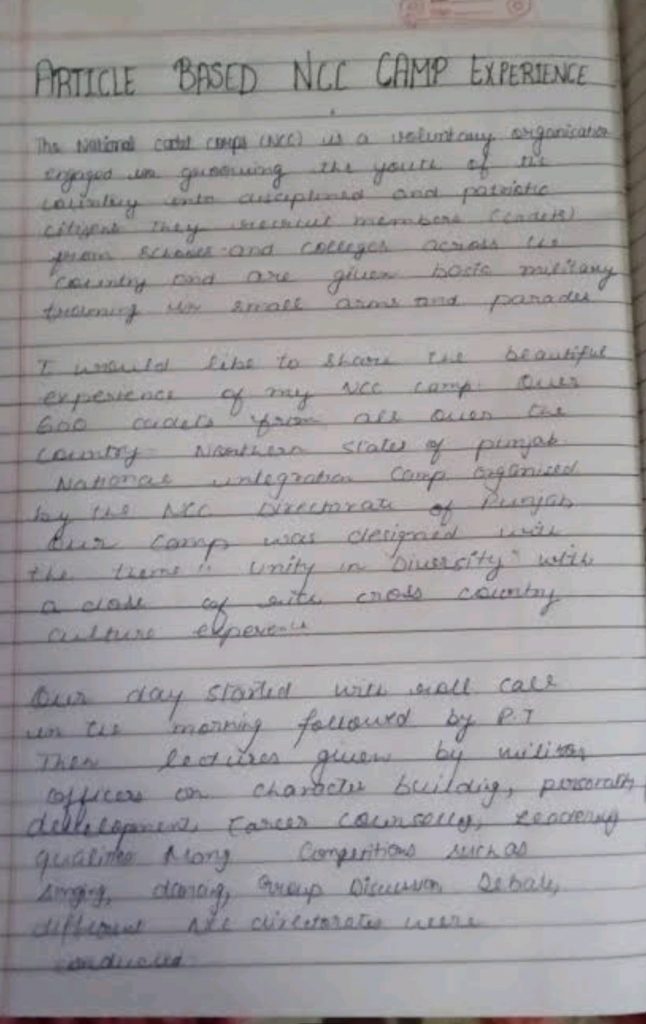 ARTICLE BASED NCC CAMP EXPERIENCE
The National cadet corps (NCC) is a voluntary organisation
engaged in grooming the youth of the
country into disciplined and patriotic
citizens they recruit members (cadets)
from schools and colleges across the
country and are given basic military
training in small arms and parades
I would like to share the beautiful
experience of my NCC camp. Over
600 cadets from all over the
country Northern states of punjab
National integration camp organised
by the NCC Directorate of Punjab
Our camp was designed with
the theme " Unity in Diversity" with
a of cross country
culture
Our day started with roll call
in the morning followed by P.T
Then lectures given by
officers on character building, personality
development, career
qualities Many Competitions such as
singing, dancing, Group Discussion Debate,
different NCC directorates were
conducted